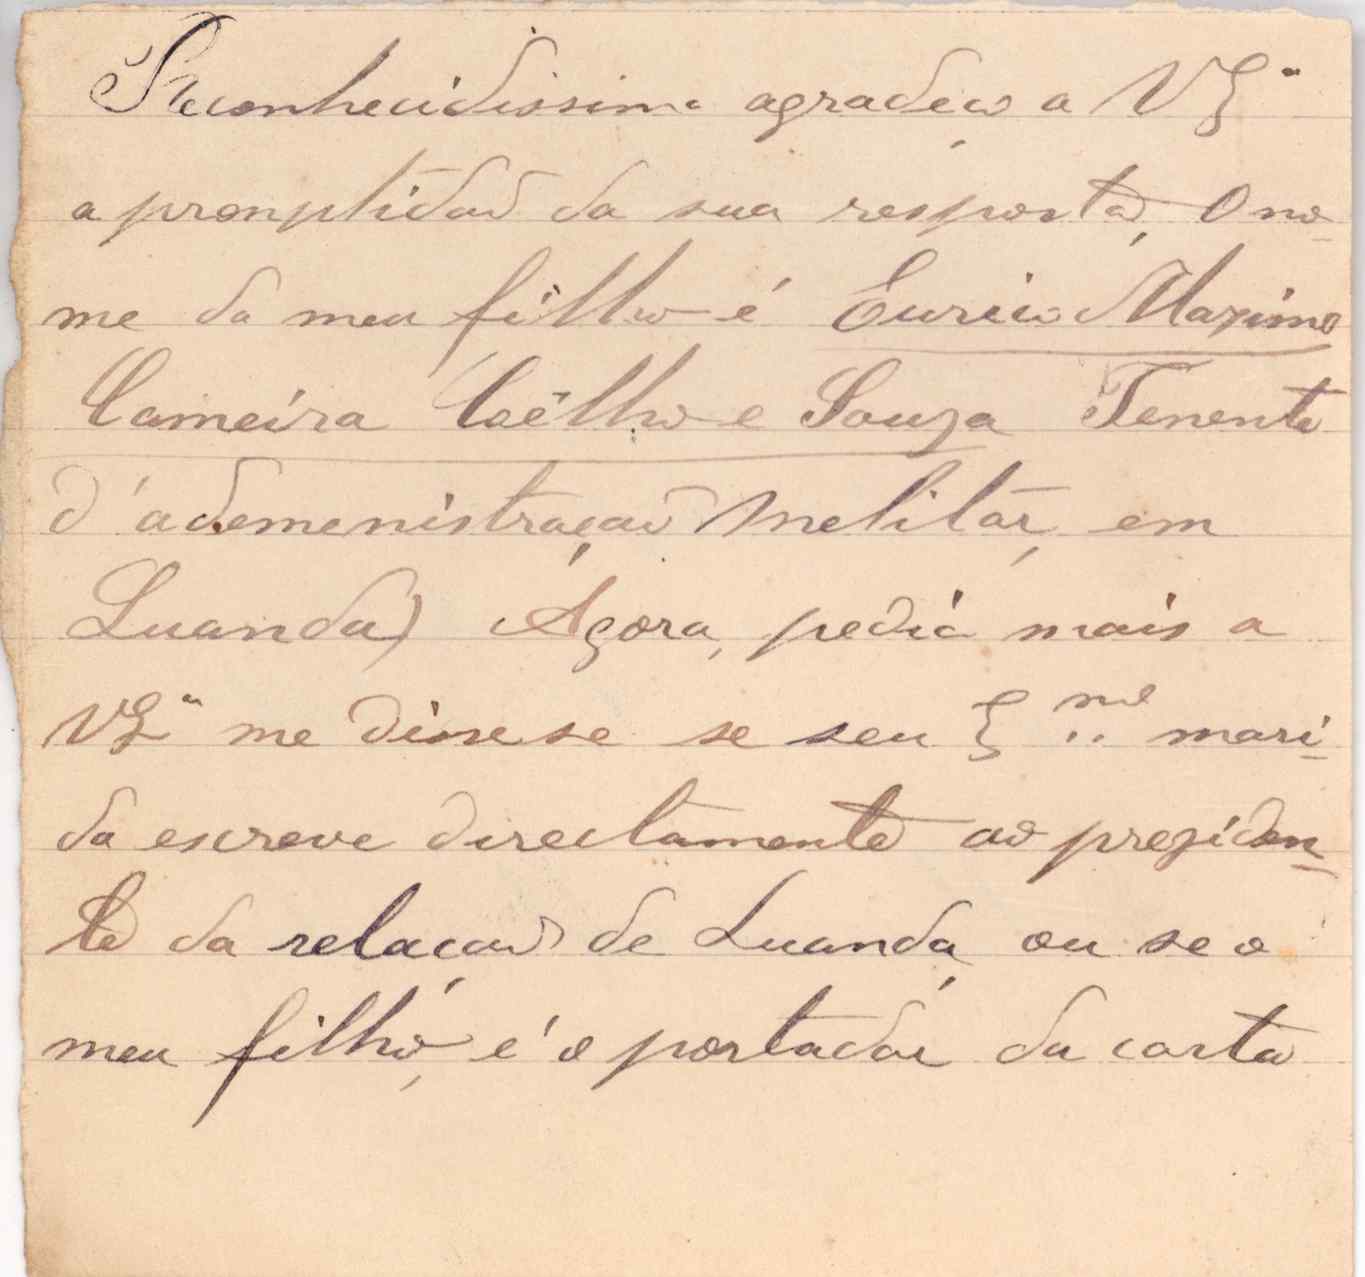 Reconhecidissima agradeço a VEª
a promptidão da sua resposta, O no-
me do meu filho é Eurico Maximo
Cameira Coêlho e Souza Tenente
d'ademenistração Melitar, em
Luanda) Agora, pedia mais a
VEª me disse-se se seu E.mo mari-
do escreve directamente ao preziden-
te da relação de Luanda, ou se o
meu filho, é o portador da carta